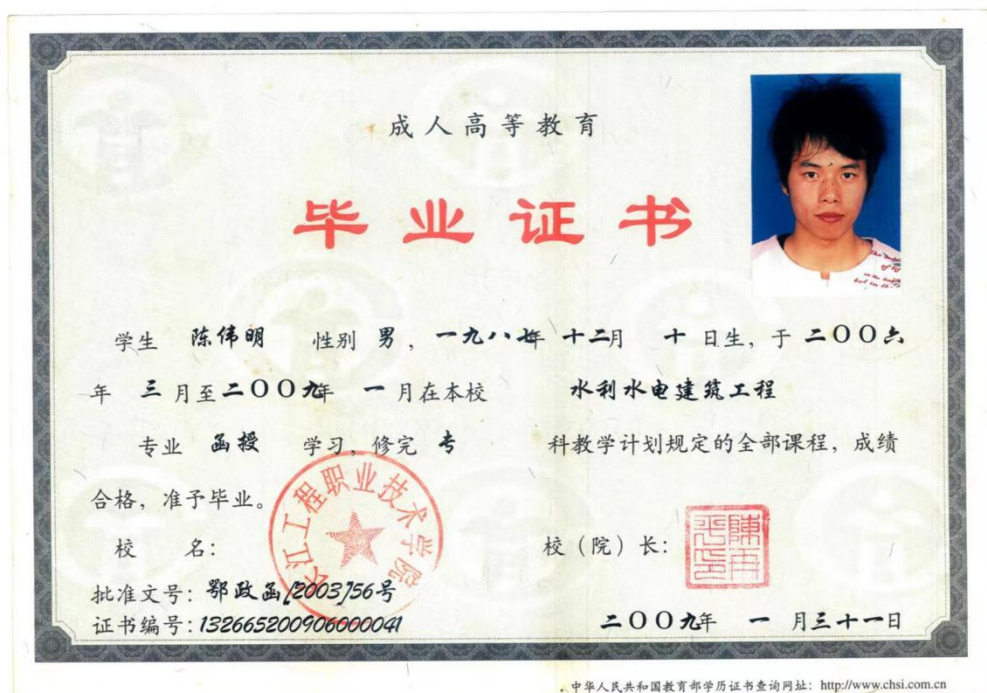 成人高等教育
毕业证书
学生 陈伟明 性别 男，一九八七年 十二月 十日生，于 二〇〇六
年 三 月至 二〇〇九年 一 月在本校 水利水电建筑工程
专业 函授 学习，修完 专 科教学计划规定的全部课程，成绩
合格，准予毕业。
长江工程职业技术学院
校 名： 校（院）长：
批准文号：鄂政函[2003]56号
证书编号：132665200906000041 二〇〇九年 一 月三十一日
中华人民共和国教育部学历证书查询网址：http://www.chsi.com.cn